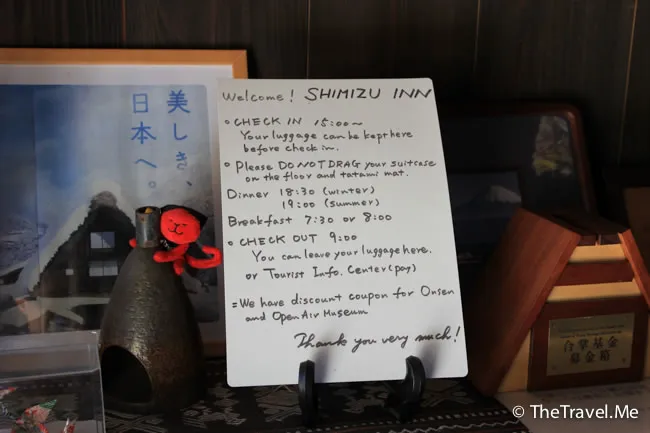 美しき、
日本へ。
Welcome! SHIMIZU INN
○ CHECK IN 15:00~
Your luggage can be kept here
before check in.
○ Please DO NOT DRAG your suitcase
on the floor and tatami mat.
Dinner 18:30 (winter)
19:00 (summer)
Breakfast 7:30 or 8:00
○ CHECK OUT 9:00
You can leave your luggage here.
or Tourist Info. Center (pay)
=We have discount coupon for Onsen
and Open Air Museum
Thank you very much!
合掌基金
募金箱
© TheTravel.Me